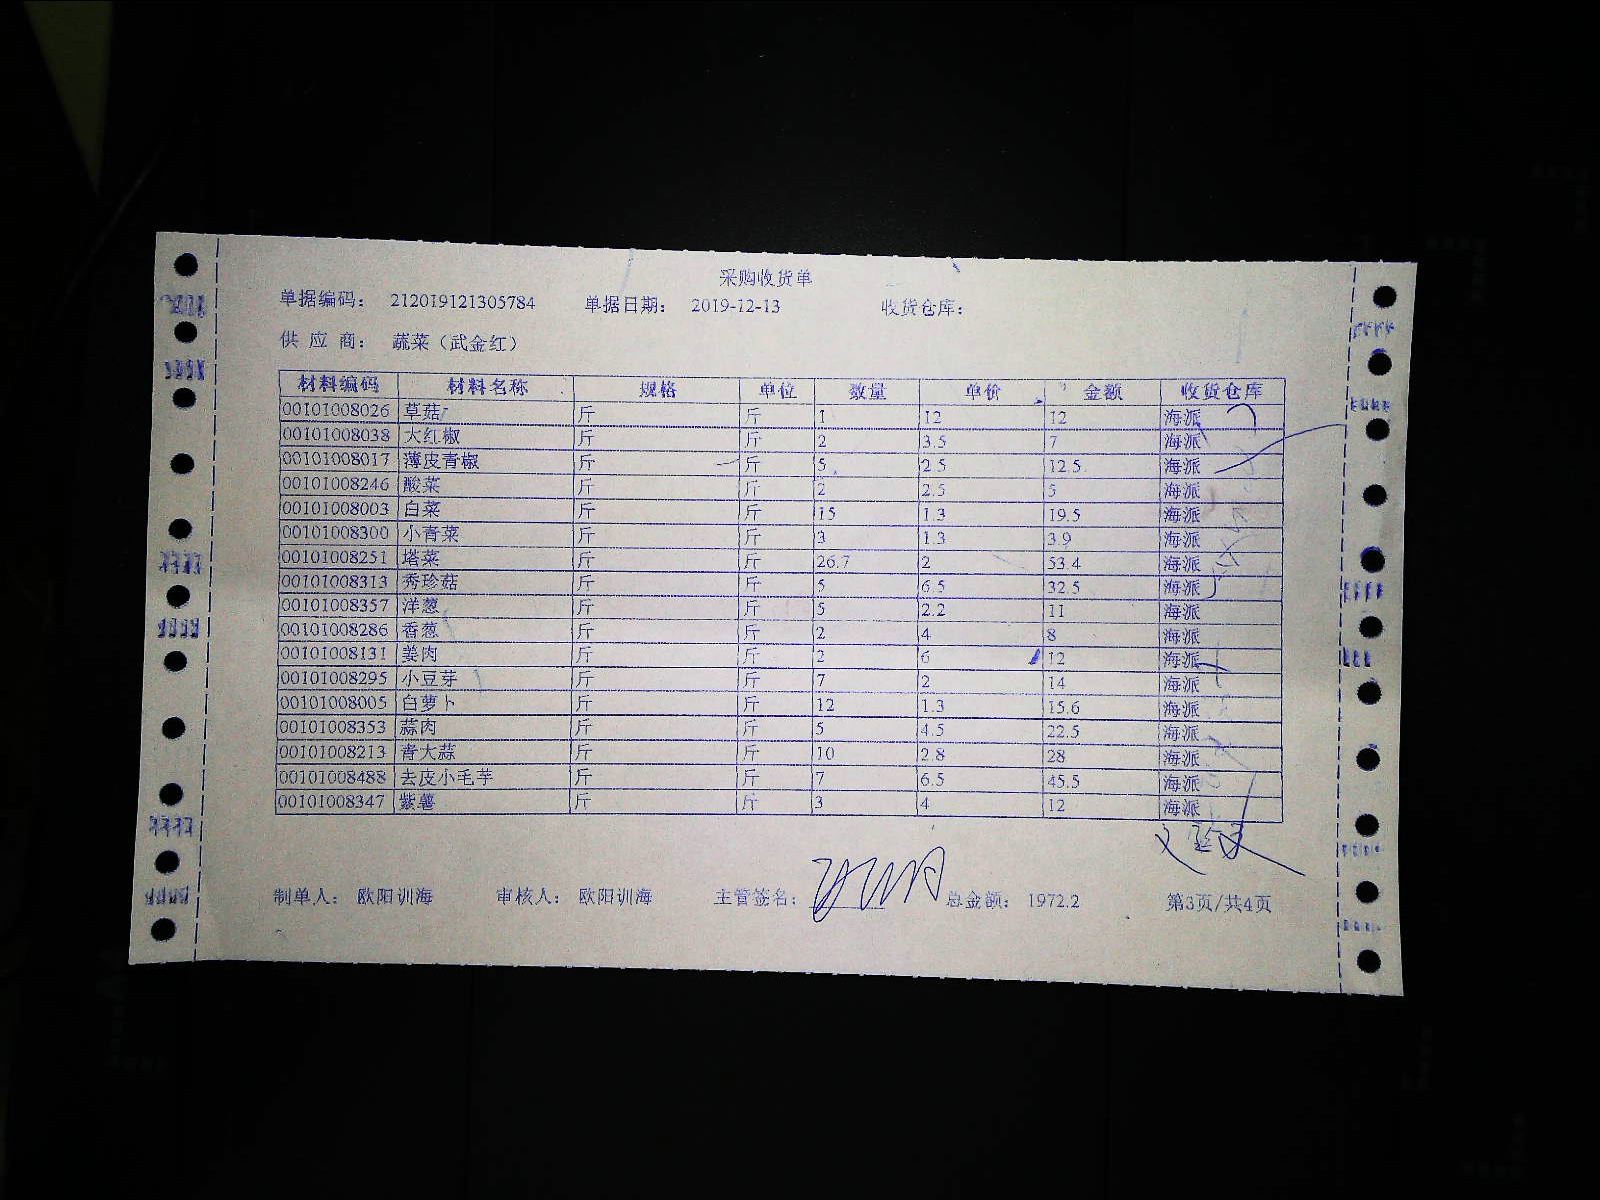 采购收货单
单据编码： 212019121305784 单据日期： 2019-12-13 收货仓库：
供 应 商： 蔬菜（武金红）
材料编码 材料名称 规格 单位 数量 单价 金额 收货仓库
00101008026 草菇 斤 斤 1 12 12 海派
00101008038 大红椒 斤 斤 2 3.5 7 海派
00101008017 薄皮青椒 斤 斤 5 2.5 12.5 海派
00101008246 酸菜 斤 斤 2 2.5 5 海派
00101008003 白菜 斤 斤 15 1.3 19.5 海派
00101008300 小青菜 斤 斤 3 1.3 3.9 海派
00101008251 塔菜 斤 斤 26.7 2 53.4 海派
00101008313 秀珍菇 斤 斤 5 6.5 32.5 海派
00101008357 洋葱 斤 斤 5 2.2 11 海派
00101008286 香葱 斤 斤 2 4 8 海派
00101008131 姜肉 斤 斤 2 6 12 海派
00101008295 小豆芽 斤 斤 7 2 14 海派
00101008005 白萝卜 斤 斤 12 1.3 15.6 海派
00101008353 蒜肉 斤 斤 5 4.5 22.5 海派
00101008213 青大蒜 斤 斤 10 2.8 28 海派
00101008488 去皮小毛芋 斤 斤 7 6.5 45.5 海派
00101008347 紫薯 斤 斤 3 4 12 海派
制单人： 欧阳训海 审核人： 欧阳训海 主管签名： 总金额： 1972.2 第3页/共4页